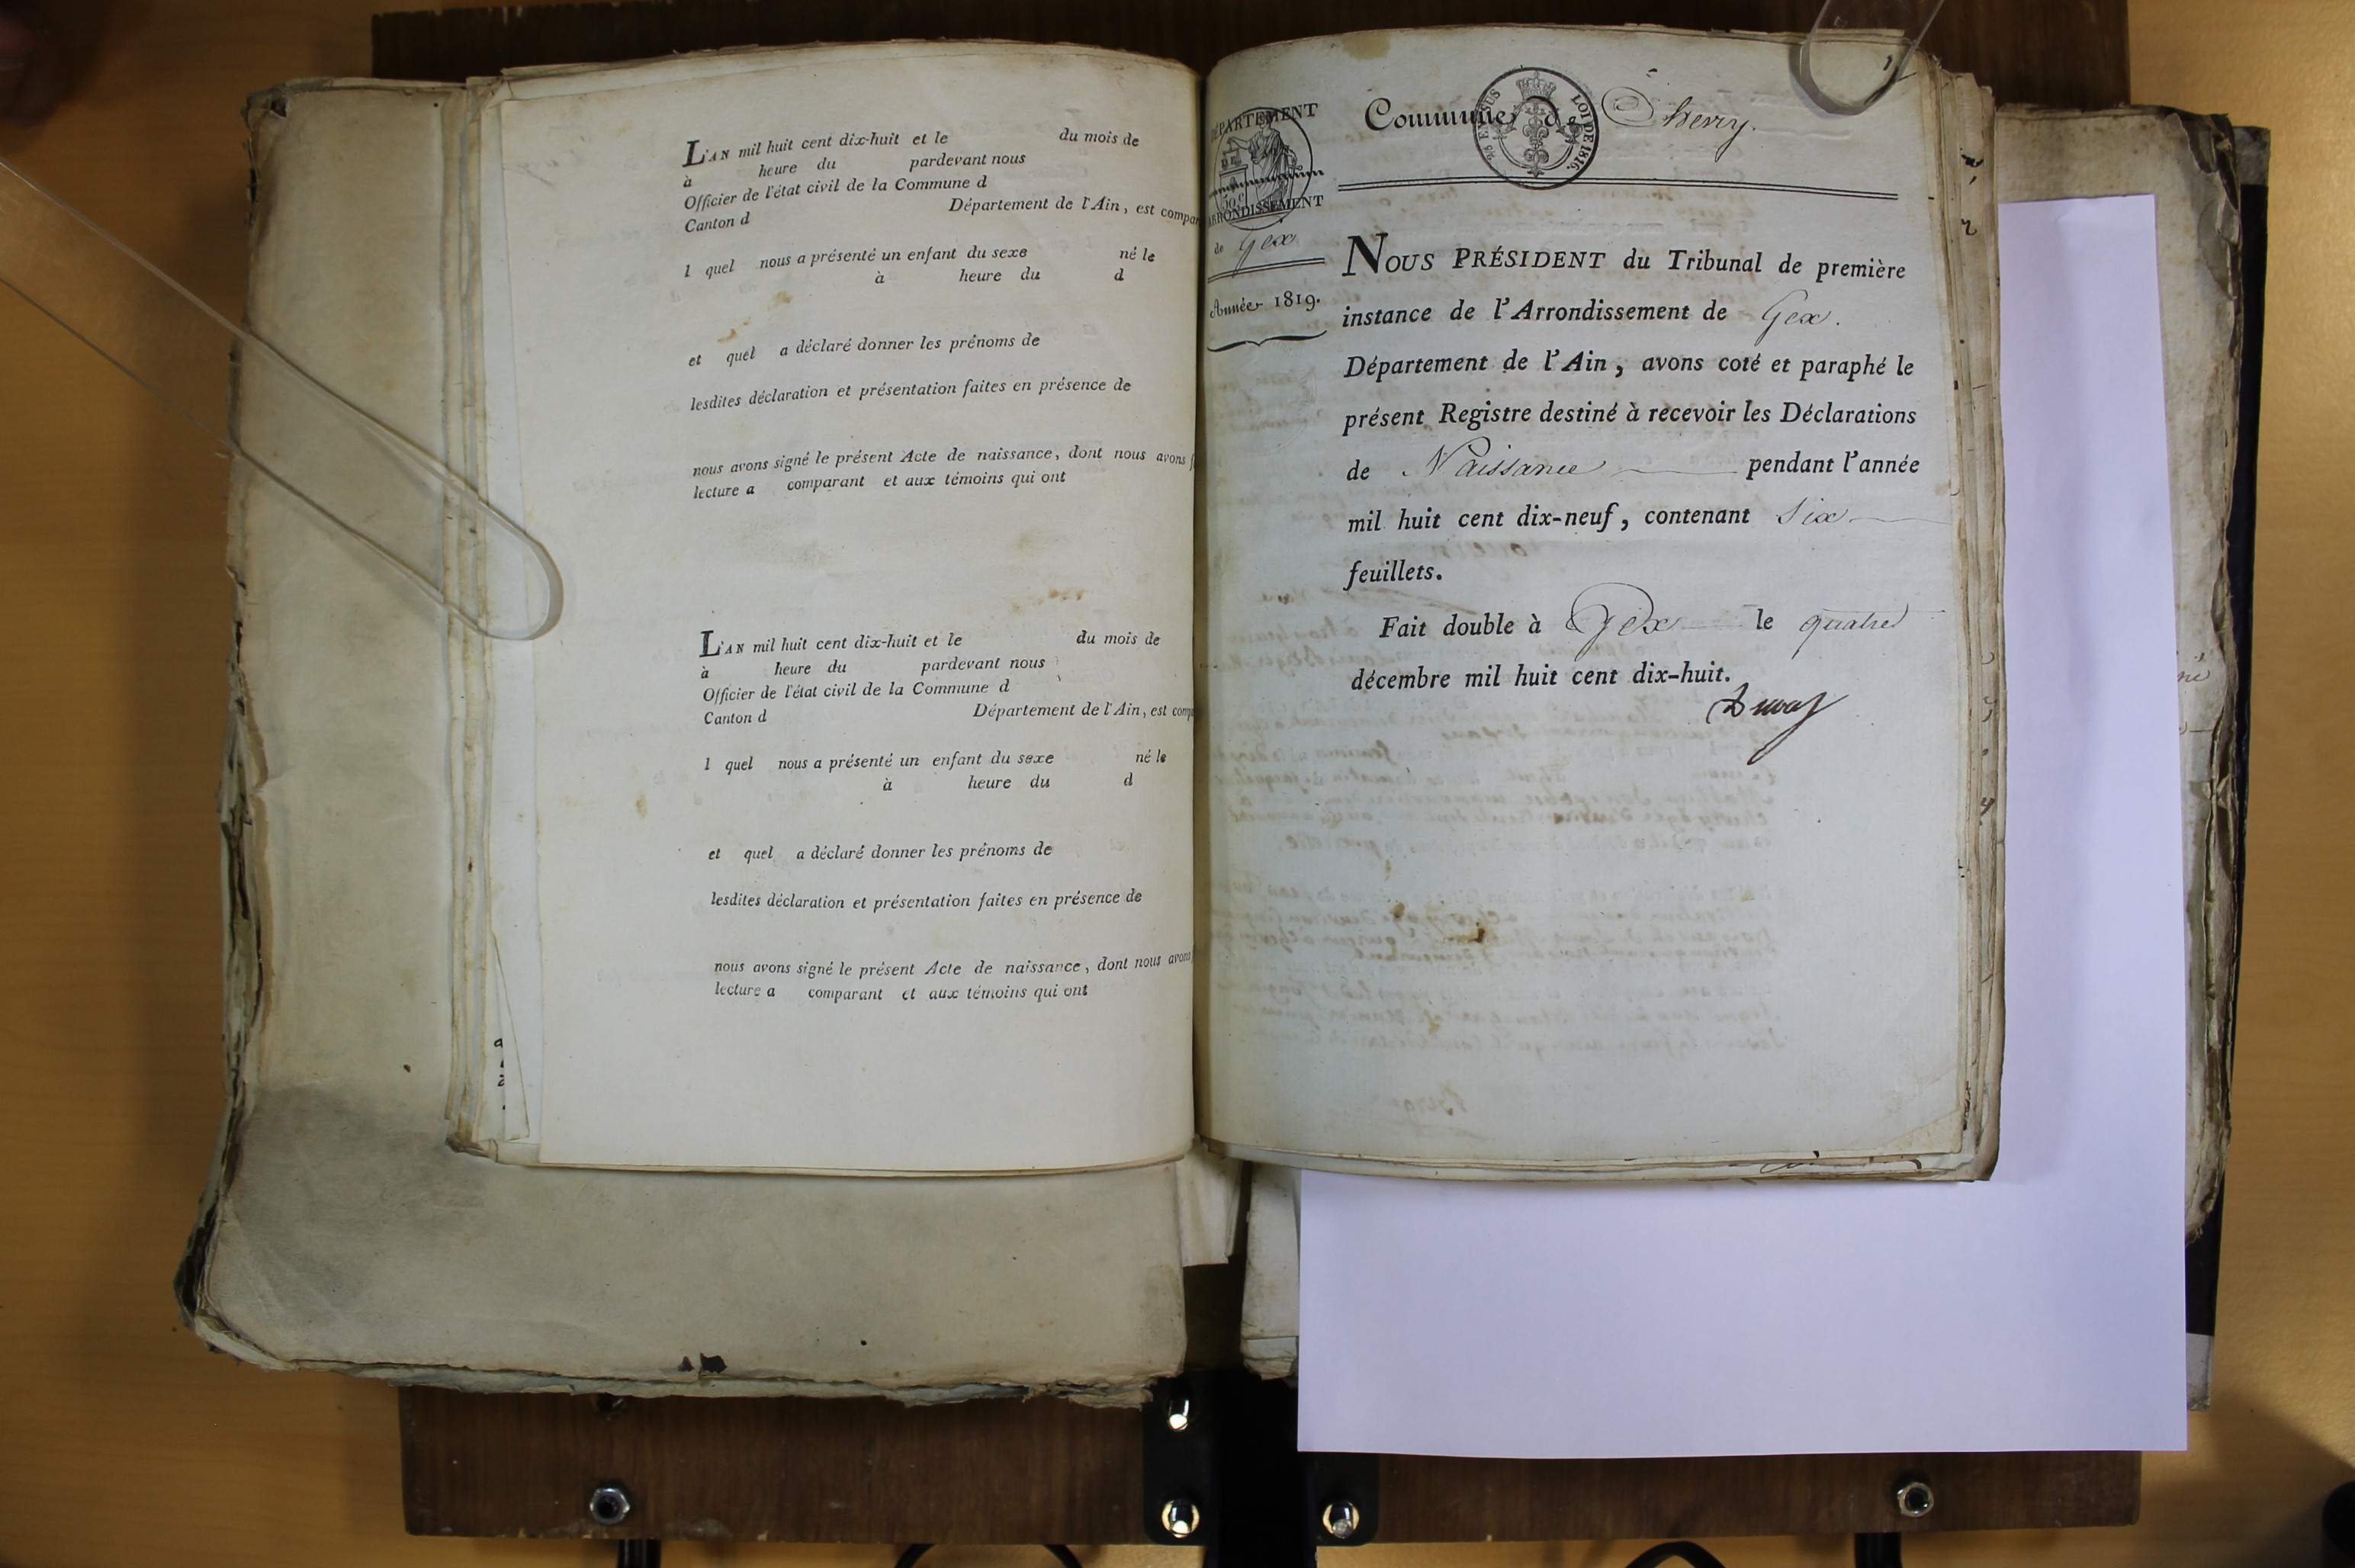 L'AN mil huit cent dix-huit et le du mois de
à heure du pardevant nous
Officier de l'état civil de la Commune d
Canton d Département de l'Ain, est compar
l quel nous a présenté un enfant du sexe né le
à heure du d
et quel a déclaré donner les prénoms de
lesdites déclaration et présentation faites en présence de
nous avons signé le présent Acte de naissance, dont nous avons f
lecture a comparant et aux témoins qui ont
L'AN mil huit cent dix-huit et le du mois de
à heure du pardevant nous
Officier de l'état civil de la Commune d
Canton d Département de l'Ain, est comp
l quel nous a présenté un enfant du sexe né le
à heure du d
et quel a déclaré donner les prénoms de
lesdites déclaration et présentation faites en présence de
nous avons signé le présent Acte de naissance, dont nous avons
lecture a comparant et aux témoins qui ont
DÉPARTEMENT
ARRONDISSEMENT
de Gex
Année 1819.
1
Commune de Chevry.
25 EN SUS LOI DE 1816.
NOUS PRÉSIDENT du Tribunal de première
instance de l'Arrondissement de Gex.
Département de l'Ain, avons coté et paraphé le
présent Registre destiné à recevoir les Déclarations
de Naissance pendant l'année
mil huit cent dix-neuf, contenant Six
feuillets.
Fait double à Gex le quatre
décembre mil huit cent dix-huit.